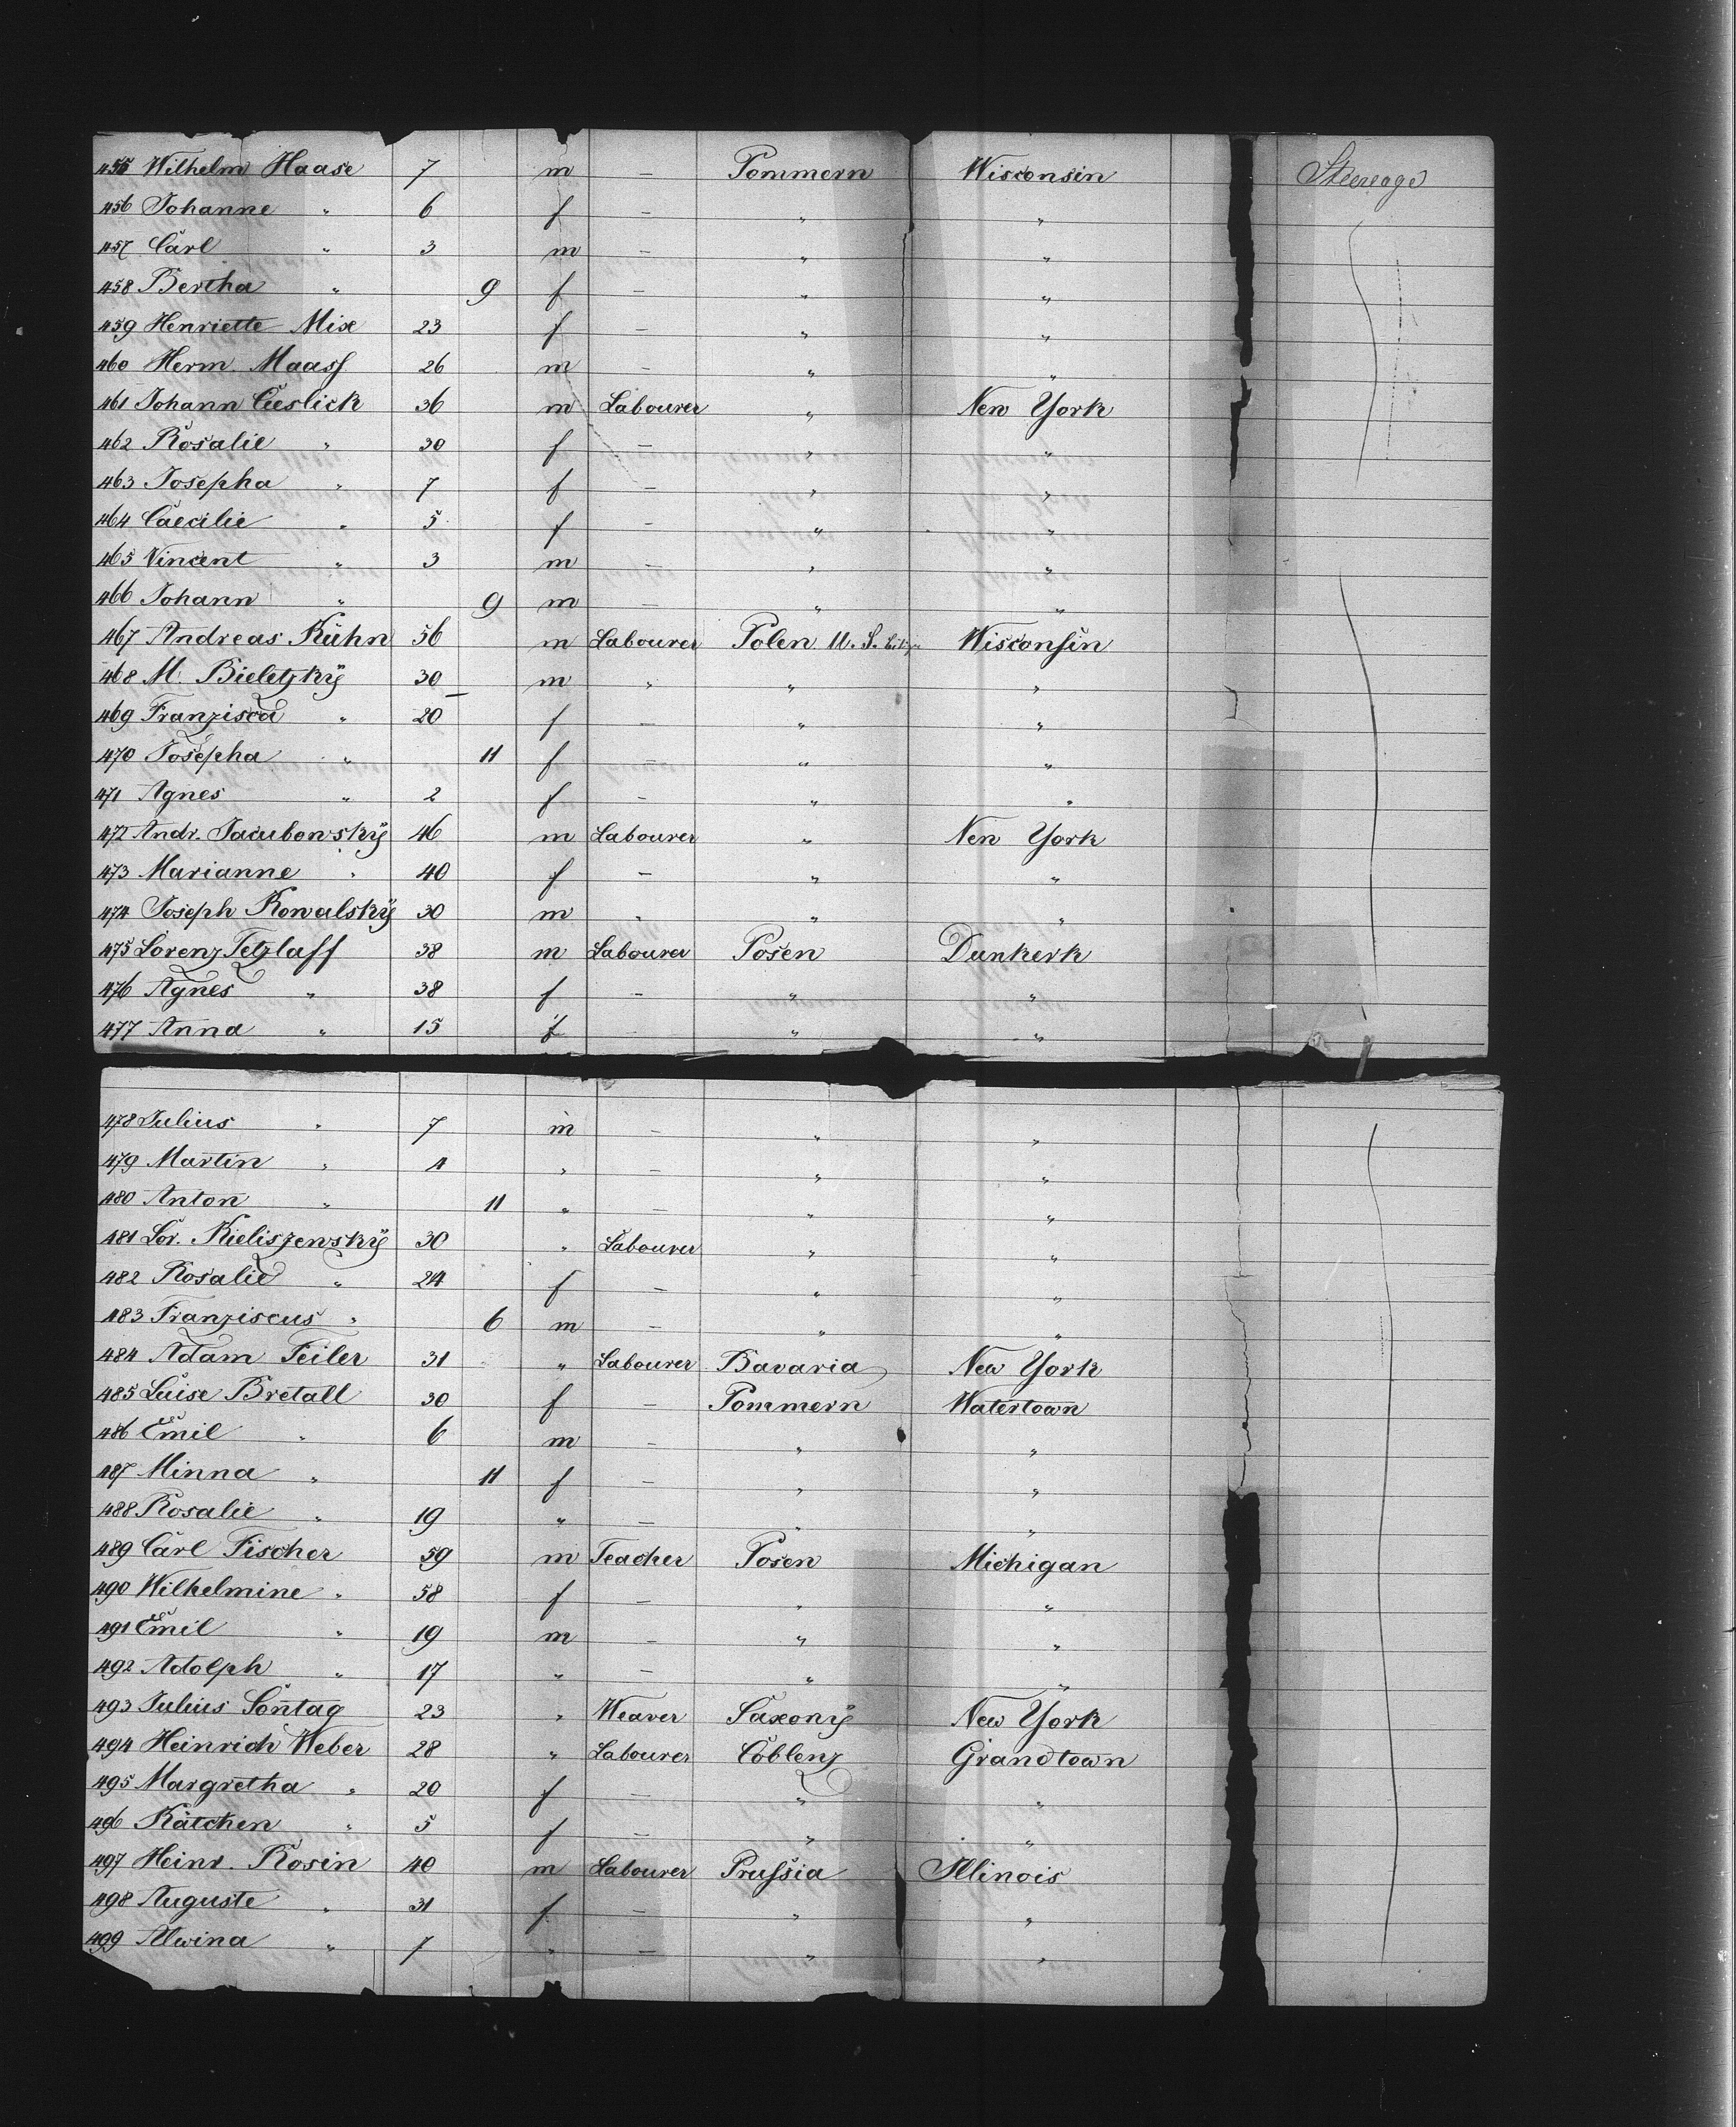 455 Wilhelm Haase 7 m – Pommern Wisconsin Steerage
456 Johanne " 6 f – " "
457 Carl " 3 m – " "
458 Bertha " 9 f – " "
459 Henriette Mix 23 f – " "
460 Herm. Maass 26 m – " "
461 Johann Cieslick 36 m Labourer " New York
462 Rosalie " 30 f – " "
463 Josepha " 7 f – " "
464 Caecilie " 5 f – " "
465 Vincent " 3 m – " "
466 Johann " 9 m – " "
467 Andreas Kühn 56 m Labourer Polen U. S. Wisconsin
468 M. Bieletzky 30 m " " "
469 Franzisca " 20 f – " "
470 Josepha " 11 f – " "
471 Agnes " 2 f – " "
472 Andr. Jacubowsky 46 m Labourer " New York
473 Marianne " 40 f – " "
474 Joseph Kowalsky 30 m " " "
475 Lorenz Tetzlaff 38 m Labourer Posen Dunkerk
476 Agnes " 38 f – " "
477 Anna " 15 f – " "
478 Julius " 7 m – " "
479 Martin " 4 " – " "
480 Anton " 11 " – " "
481 Lor. Kieliszewsky 30 " Labourer " "
482 Rosalie " 24 f – " "
483 Franziscus " 6 m – " "
484 Adam Feiler 31 " Labourer Bavaria New York
485 Luise Bretall 30 f – Pommern Watertown
486 Emil " 6 m – " "
487 Minna " 11 f – " "
488 Rosalie " 19 " – " "
489 Carl Fischer 59 m Teacher Posen Michigan
490 Wilhelmine " 58 f – " "
491 Emil " 19 m – " "
492 Adolph " 17 " – " "
493 Julius Sontag 23 " Weaver Saxony New York
494 Heinrich Weber 28 " Labourer Coblenz Grandtown
495 Margretha " 20 f – " "
496 Kätchen " 5 f – " "
497 Heinr. Rosin 40 m Labourer Prussia Illinois
498 Auguste " 31 f – " "
499 Alwina " 7 " – " "